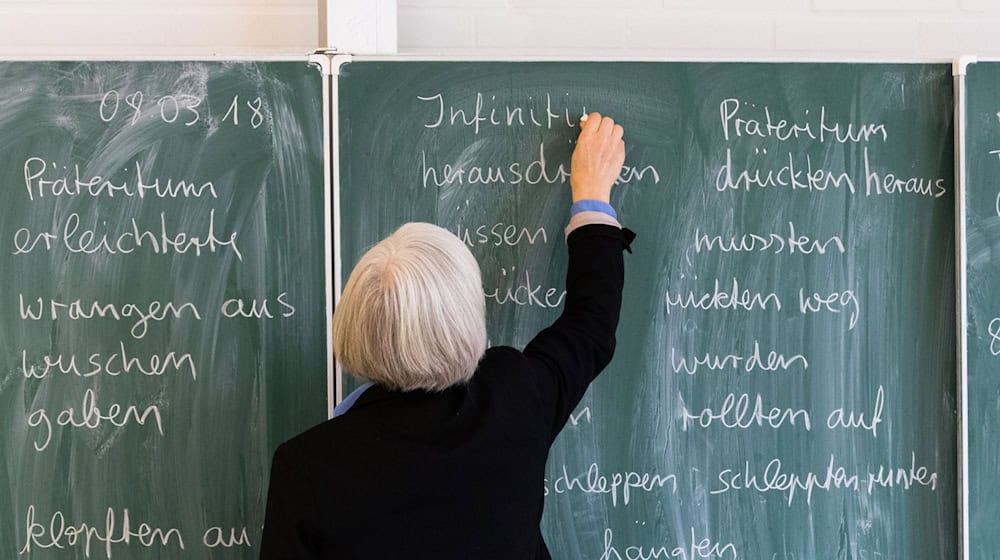 08.03.18
Präteritum
erleichterte
wrangen aus
wuschen
gaben
klopften au
Infiniti
schleppen
Präteritum
drückten heraus
mussten
rückten weg
wurden
rollten auf
schleppten runter
hängten